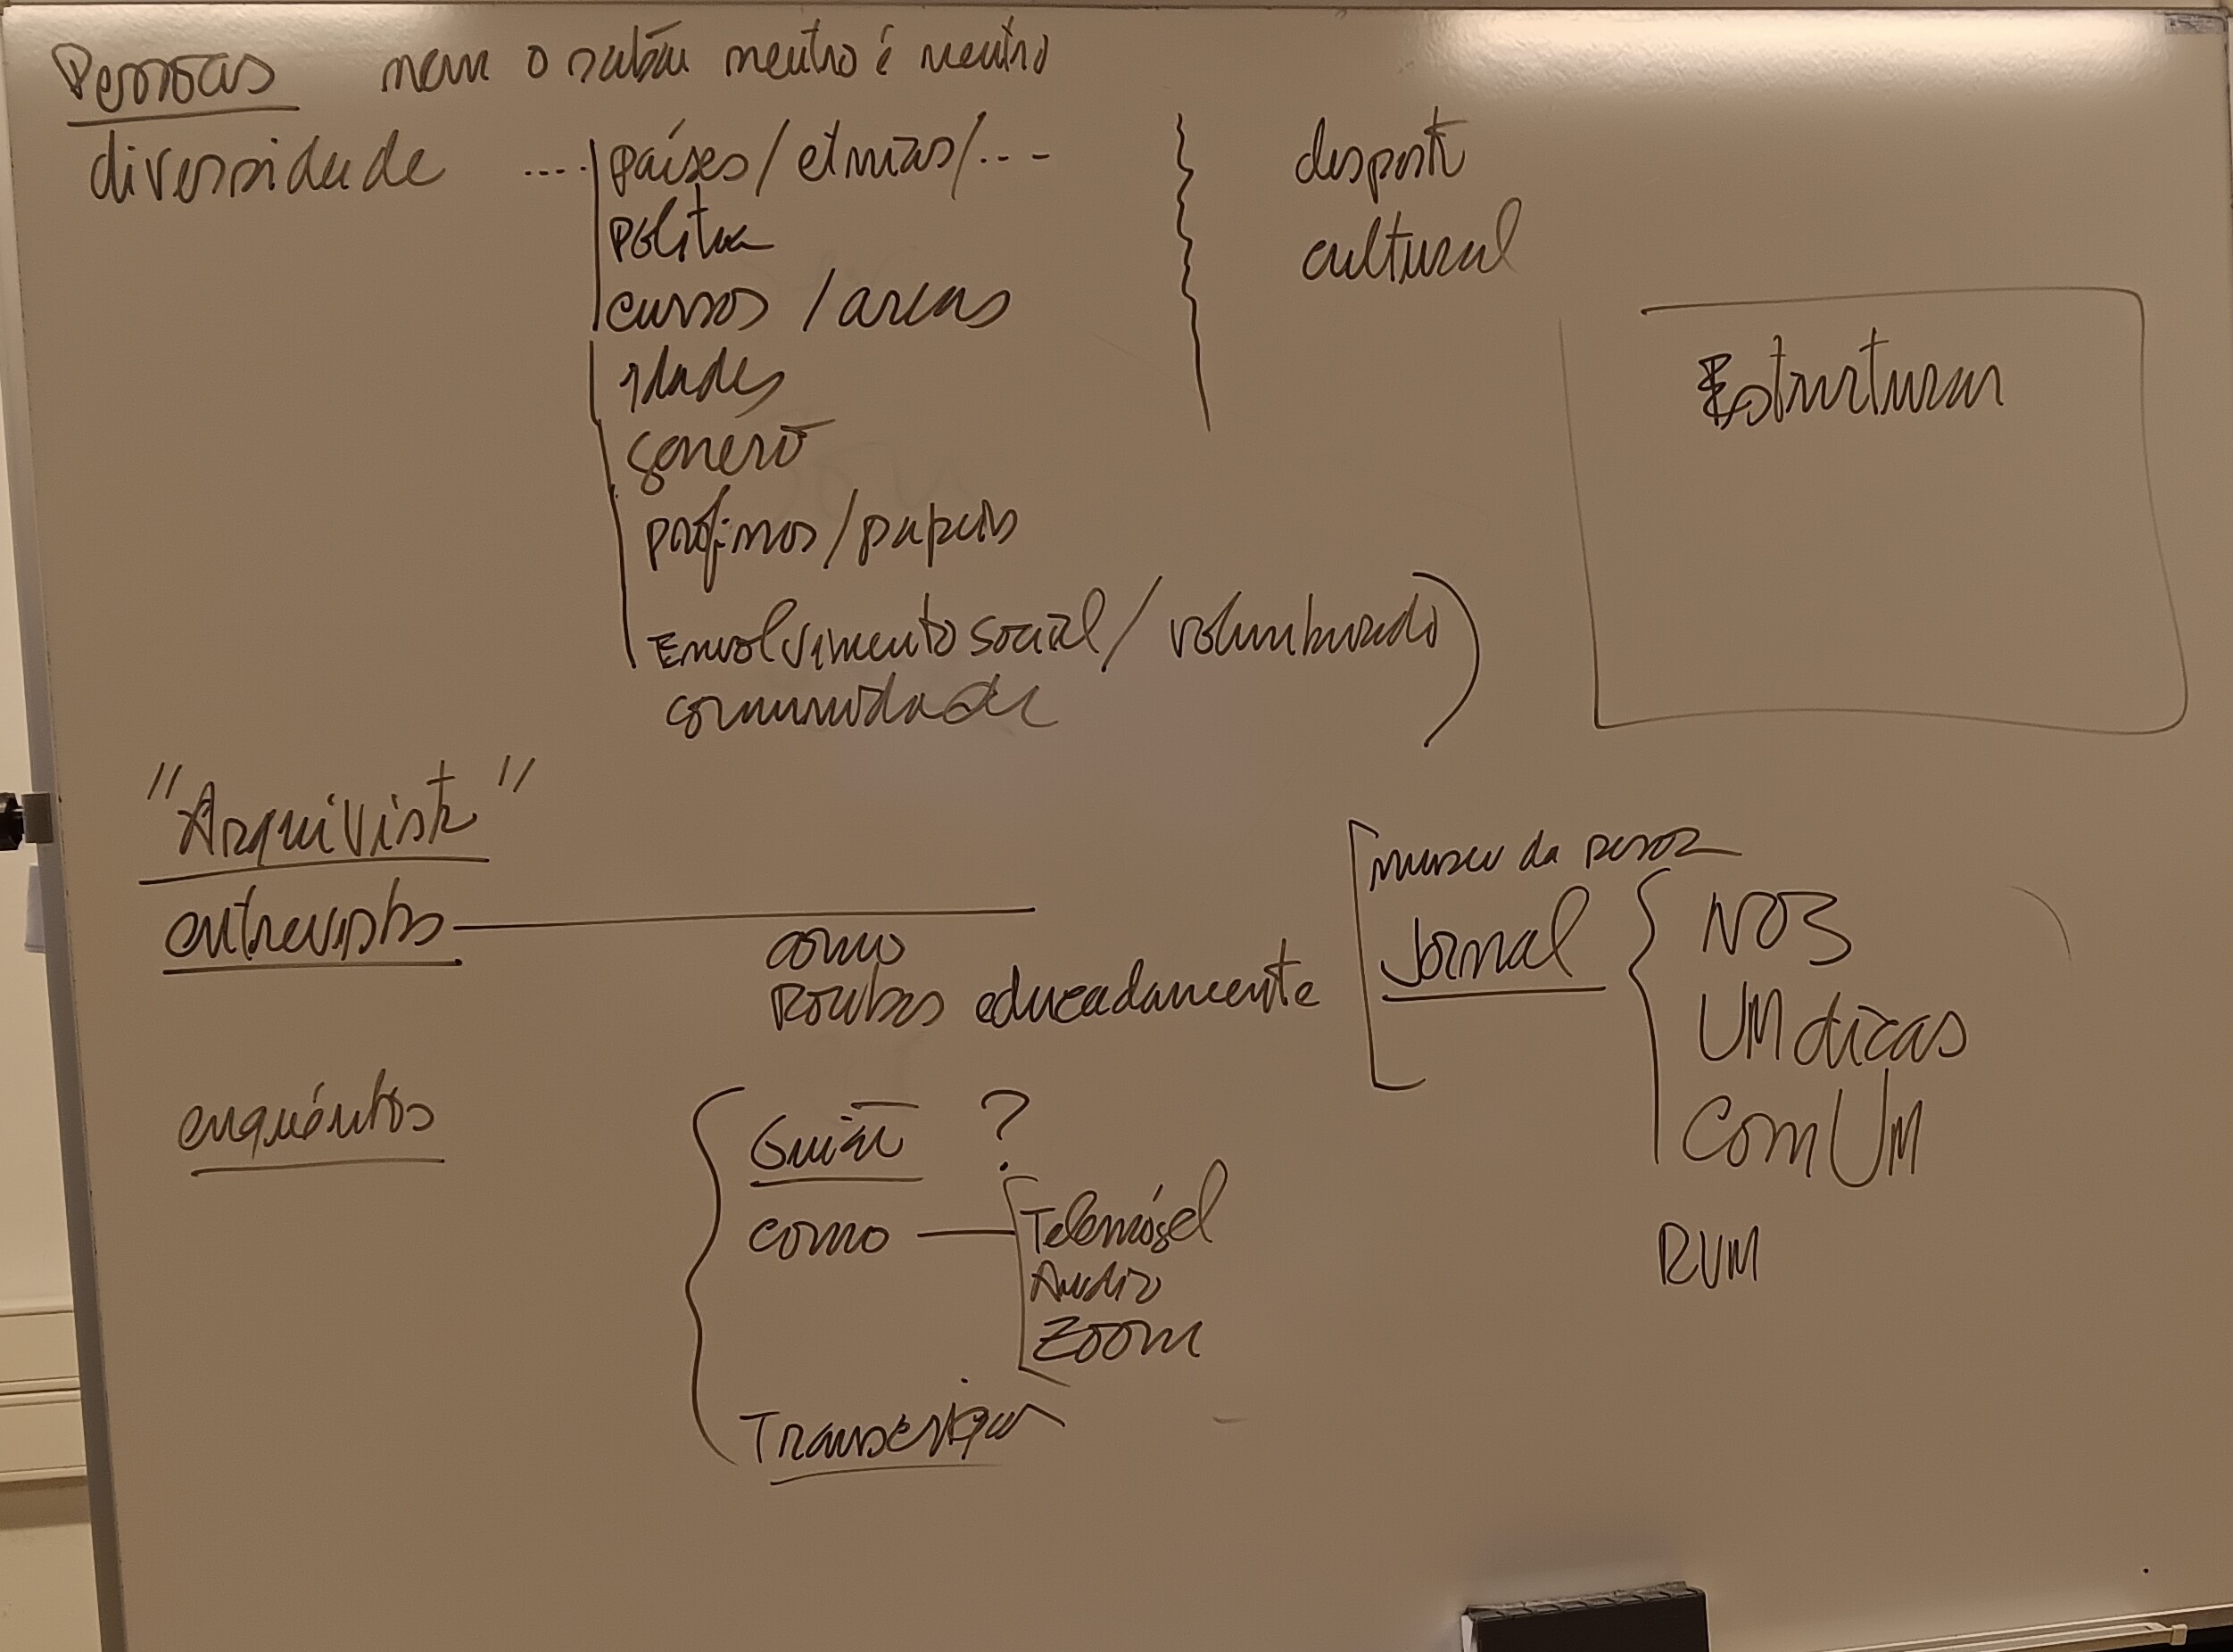 Pessoas nem o sabão neutro é neutro
diversidade .... países / etnias / ...
política
cursos / areas
idades
genero
/ papeis
Envolvimento social / voluntariado
comunidade
desporto
cultural
Estruturar
"Arquivista"
entrevistas
como
Roubas educadamente
museu da pessoa
Jornal
NOS
UMdicas
ComUM
RUM
enquéritos
Guião ?
como
Telemóvel
Audio
Zoom
Transcrição